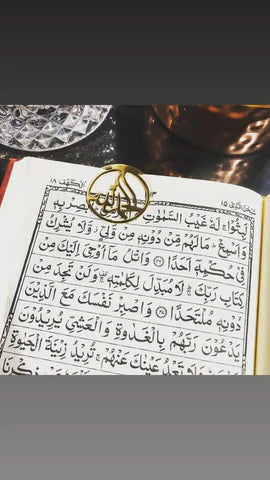 الكهف ١٨
سبحن الذى ١٥
لبثوا له غيب السموت بصر به
واسمع ما لهم من دونه من ولي ولا يشرك
فى حكمه احدا ٢٦ واتل ما اوحى اليك من
كتاب ربك لا مبدل لكلمته ولن تجد من
دونه ملتحدا ٢٧ واصبر نفسك مع الذين
يدعون ربهم بالغدوة والعشي يريدون
ولا تعد عينك عنهم تريد زينة الحيوة